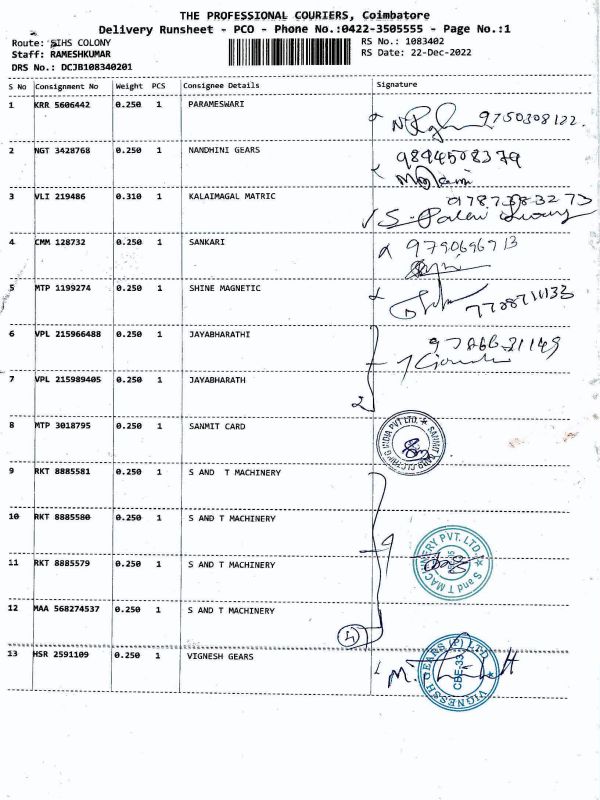 THE PROFESSIONAL COURIERS, Coimbatore
Delivery Runsheet - PCO - Phone No.:0422-3505555 - Page No.:1
Route: SIHS COLONY RS No.: 1083402
Staff: RAMESHKUMAR RS Date: 22-Dec-2022
DRS No.: DCJB108340201
S No Consignment No Weight PCS Consignee Details Signature
1 KRR 5606442 0.250 1 PARAMESWARI
9750308122.
2 NGT 3428768 0.250 1 NANDHINI GEARS 9894508379
3 VLI 219486 0.310 1 KALAIMAGAL MATRIC
4 CMM 128732 0.250 1 SANKARI
5 MTP 1199274 0.250 1 SHINE MAGNETIC
6 VPL 215966488 0.250 1 JAYABHARATHI
7 VPL 215989405 0.250 1 JAYABHARATH
2
8 MTP 3018795 0.250 1 SANMIT CARD
9 RKT 8885581 0.250 1 S AND T MACHINERY
10 RKT 8885580 0.250 1 S AND T MACHINERY
11 RKT 8885579 0.250 1 S AND T MACHINERY
S and T MACHINERY PVT. LTD.
12 MAA 568274537 0.250 1 S AND T MACHINERY
4
13 HSR 2591109 0.250 1 VIGNESH GEARS
VIGNESH GEARS (P) LTD
CBE-33